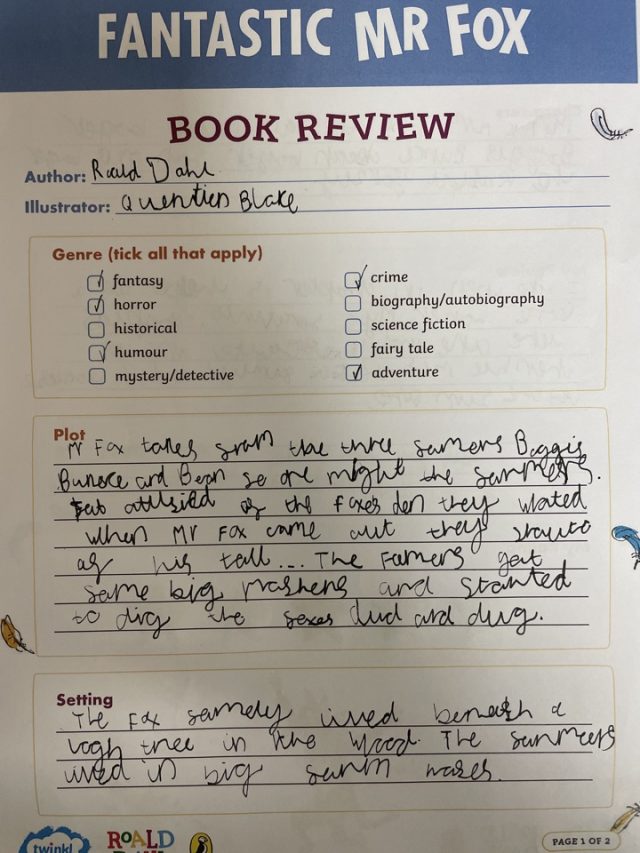 FANTASTIC MR FOX
BOOK REVIEW
Author: Roald Dahl
Illustrator: Quentien Blake
Genre (tick all that apply)
fantasy
horror
historical
humour
mystery/detective
crime
biography/autobiography
science fiction
fairy tale
adventure
Plot
Mr Fox takes from the three farmers Boggis
Bunece and Bean so one night the farmers.
of the foxes den they wated
when Mr Fox came out they
his tall... The Farmers got
some big mashens and started
to dig the foxes dud and dug.
Setting
The Fox famely lived beneath a
tree in the Wood. The farmers
lived in big farm
twinkl
ROALD
PAGE 1 OF 2